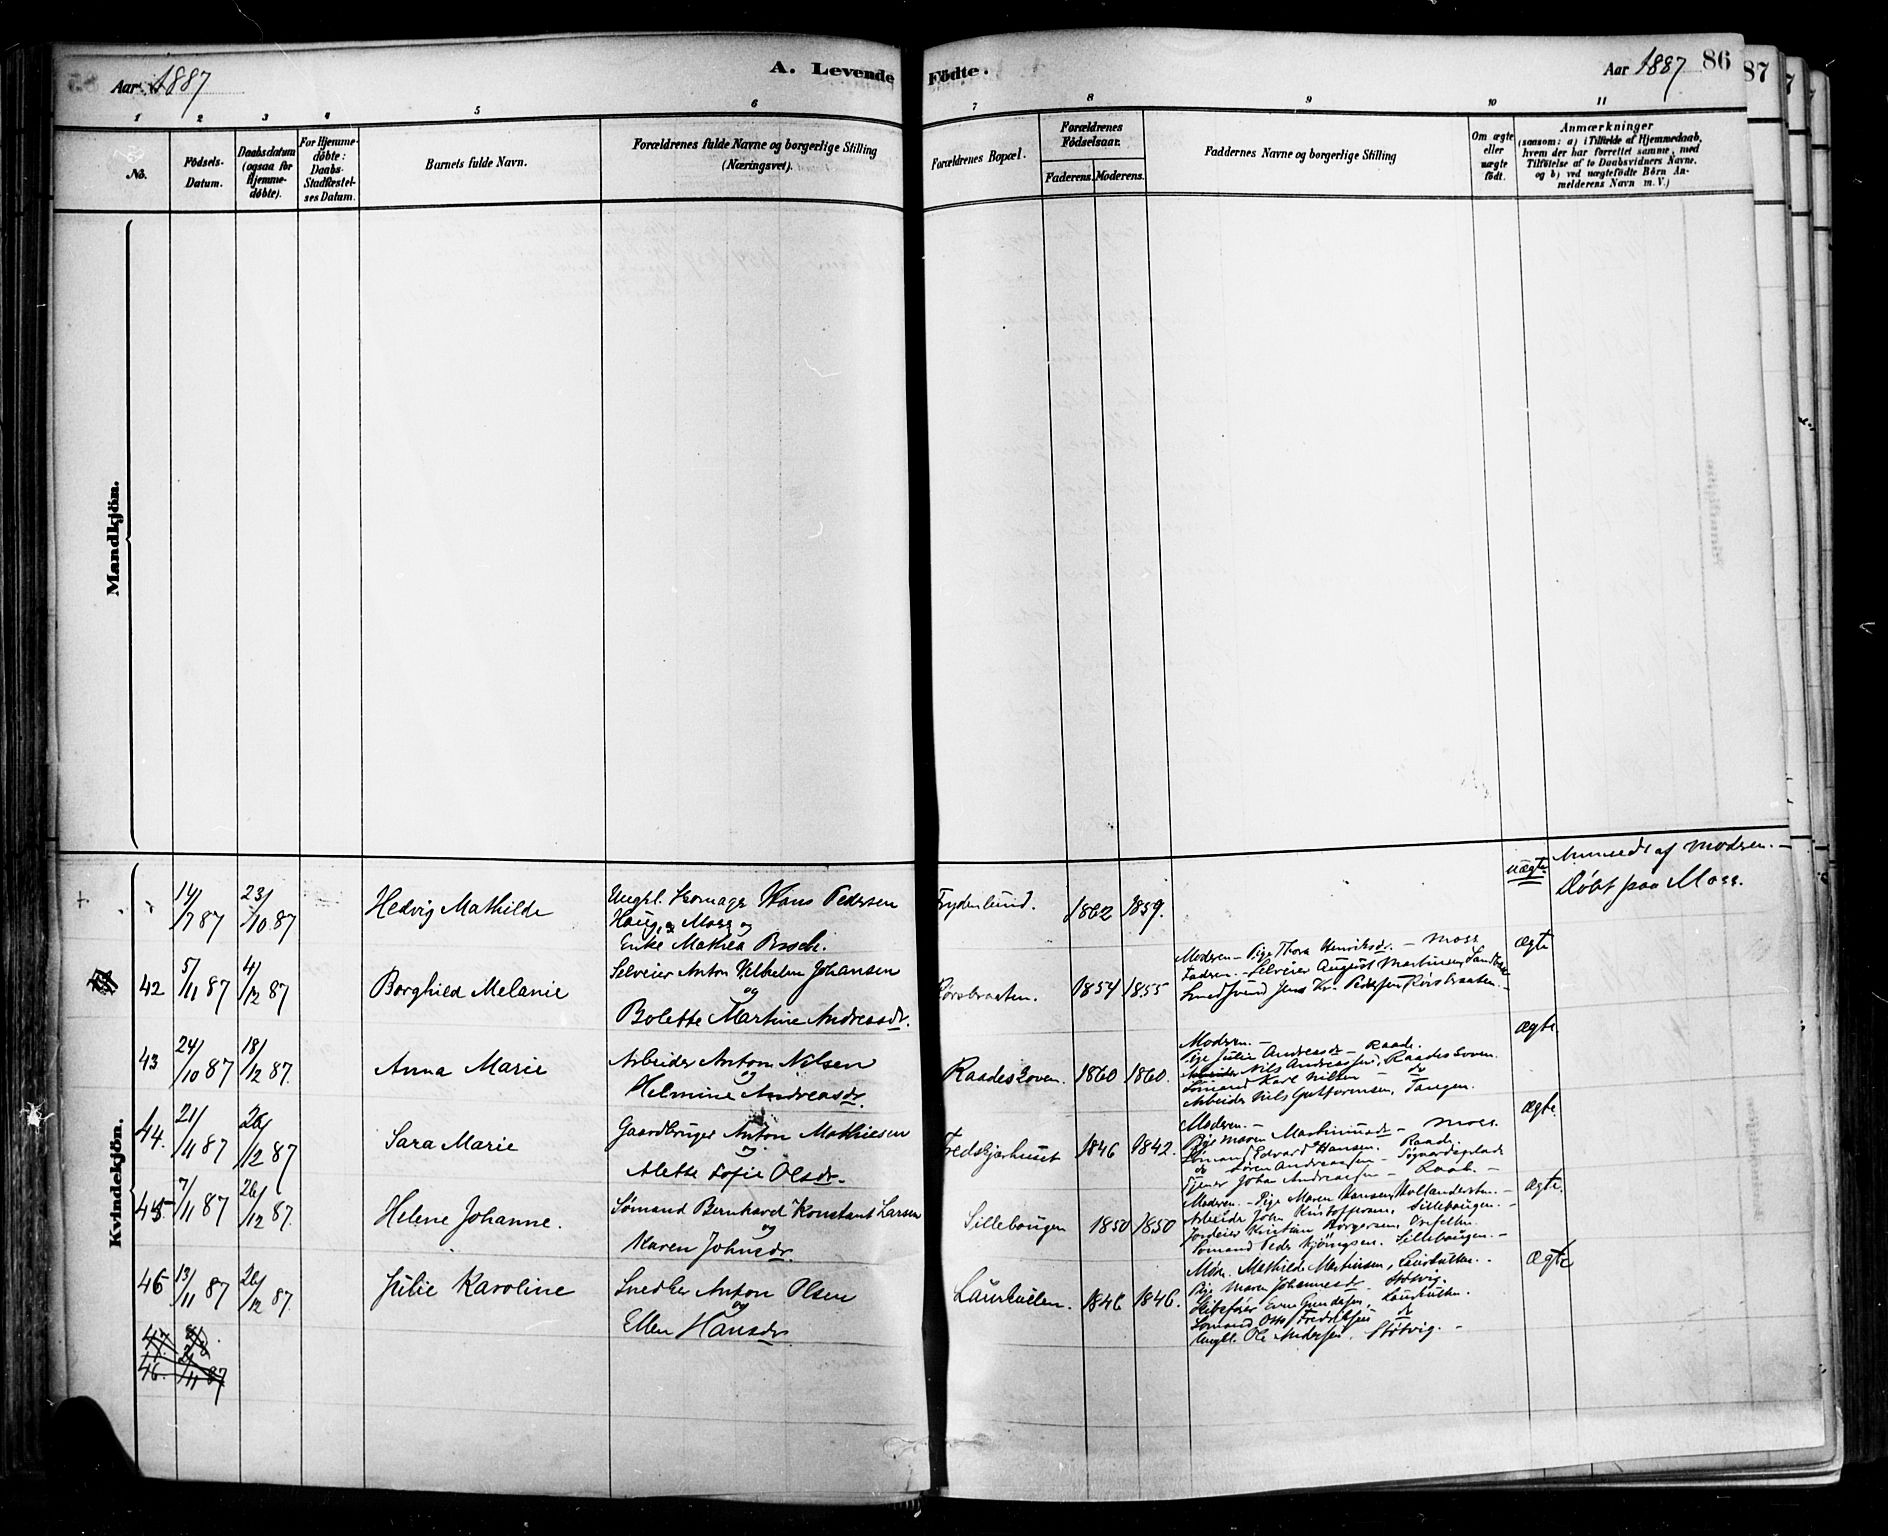 Aar 1887
A. Levende Födte.
Aar 1887 86
87
1 2 3 4 5 6 7 8 9 10 11
No.
Födsels-Datum.
Daabsdatum (ogsaa for Hjemme-döbte).
For Hjemme-döbte: Daabs-Stadfæstel-ses Datum.
Barnets fulde Navn.
Forældrenes fulde Navne og borgerlige Stilling
(Næringsvei).
Forældrenes Bopæl.
Forældrenes Födselsaar.
Faderens. Moderens.
Faddernes Navne og borgerlige Stilling
Om ægte eller uægte födt.
Anmærkninger
(saasom: a) i Tilfælde af Hjemmedaab,
hvem der har forrettet samme, med
Tilföielse af to Daabsvidners Navne,
og b) ved uægtefödte Börn An-
melderens Navn m. V.)
Mandkjön.
Kvindekjön.
14/7 87 23/10 87 Hedvig Mathilde
Ungkl. Hans Pedersen
Haug, Moss og
Enke Mathea
Frydenlund. 1862 1859.
uægte
af Modren. -
Döbt paa Moss.
42 5/11 87 4/12 87 Borghild Melanie
Selveier Anton Vilhelm Johansen
og
Bolette Martine Andreasdr.
Korsbraaten. 1854 1855
Modren - Pige Thora Henriksdr. - Moss
Fadren. - Selveier August Martinsen
Pedersen Korsbraaten. -
ægte
43 24/10 87 18/12 87. Anna Marie
Arbeider Anton Nilsen
og
Helmine Andreasdr.
Raadesoven. 1860 1860.
Modren. -
Pige Julie Andreasdr - Raade.
Nils Andreassen, Raadesoven.
Sömand Karl Nilsen do
Arbeider Nils Guttormsen, Tangen.
ægte
44. 21/11 87 26/12 87 Sara Marie
Gaardbruger Anton Mathiesen
og
Alette Sofie Olsdr.
Fredskjærhuset 1846 1842.
Modren. -
Pige Maren Martinusdr - Moss.
Sömand Edvard Hansen. Raade.
do Sören Andreassen -
Tjener Johan Andreasen - Raade -
ægte
45 7/11 87 26/12 87. Helene Johanne.
Sömand Bernhard Konstant Larsen
og
Karen Johnsdr.
Sillebougen 1850 1850
Modren. - Pige Maren Hansen, -
Arbeider John Kristoffersen, Sillebaugen. -
Jordeier Kristian Börgersen,
Sömand Peder Sillebaugen. -
ægte.
46 13/11 87 26/12 87. Julie Karoline
Snedker Anton Olsen
og
Ellen Hansdr
Laurkullen. 1846 1846.
Mathilde Martinsen, Laurkullen.
Pige Maren Johannesdr - Stötvig.
Even Gundersen, Laurkullen.
Sömand Otto Fredriksen do
Ungkl. Ole Andersen, Stötvig. -
ægte
47.
46. 2/11 87